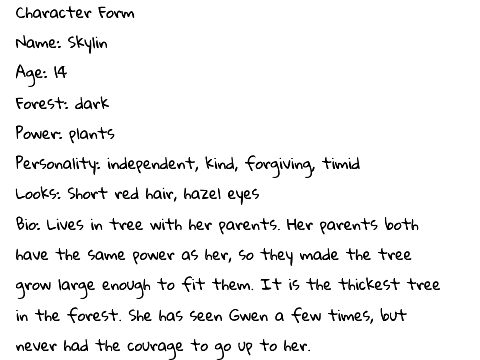 Character Form
Name: Skylin
Age: 14
Forest: dark
Power: plants
Personality: independent, kind, forgiving, timid
Looks: Short red hair, hazel eyes
Bio: Lives in tree with her parents. Her parents both
have the same power as her, so they made the tree
grow large enough to fit them. It is the thickest tree
in the forest. She has seen Gwen a few times, but
never had the courage to go up to her.